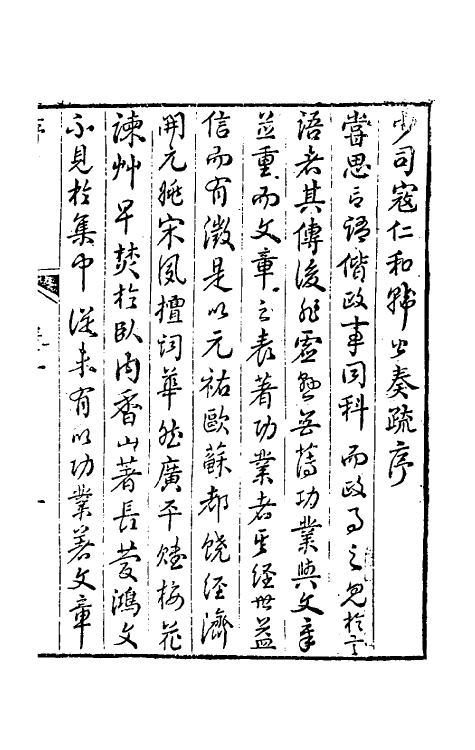 少司寇仁和韩公奏疏序
嘗思言語偕政事同科而政事之見於言
語者其傳後非虛無葢功業與文章
並重而文章之表著功業者其經世益
信而有徵是以元祐歐蘇都饒經濟
開元姚宋夙擅詞華然廣平賦梅花
諫艸早焚於臥內香山著長慶鴻文
不見於集中從未有以功業善文章
序